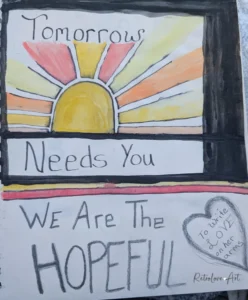 Tomorrow
Needs You
We Are The
HOPEFUL
To Write
LOVE
on her
arms
Retrolove Art